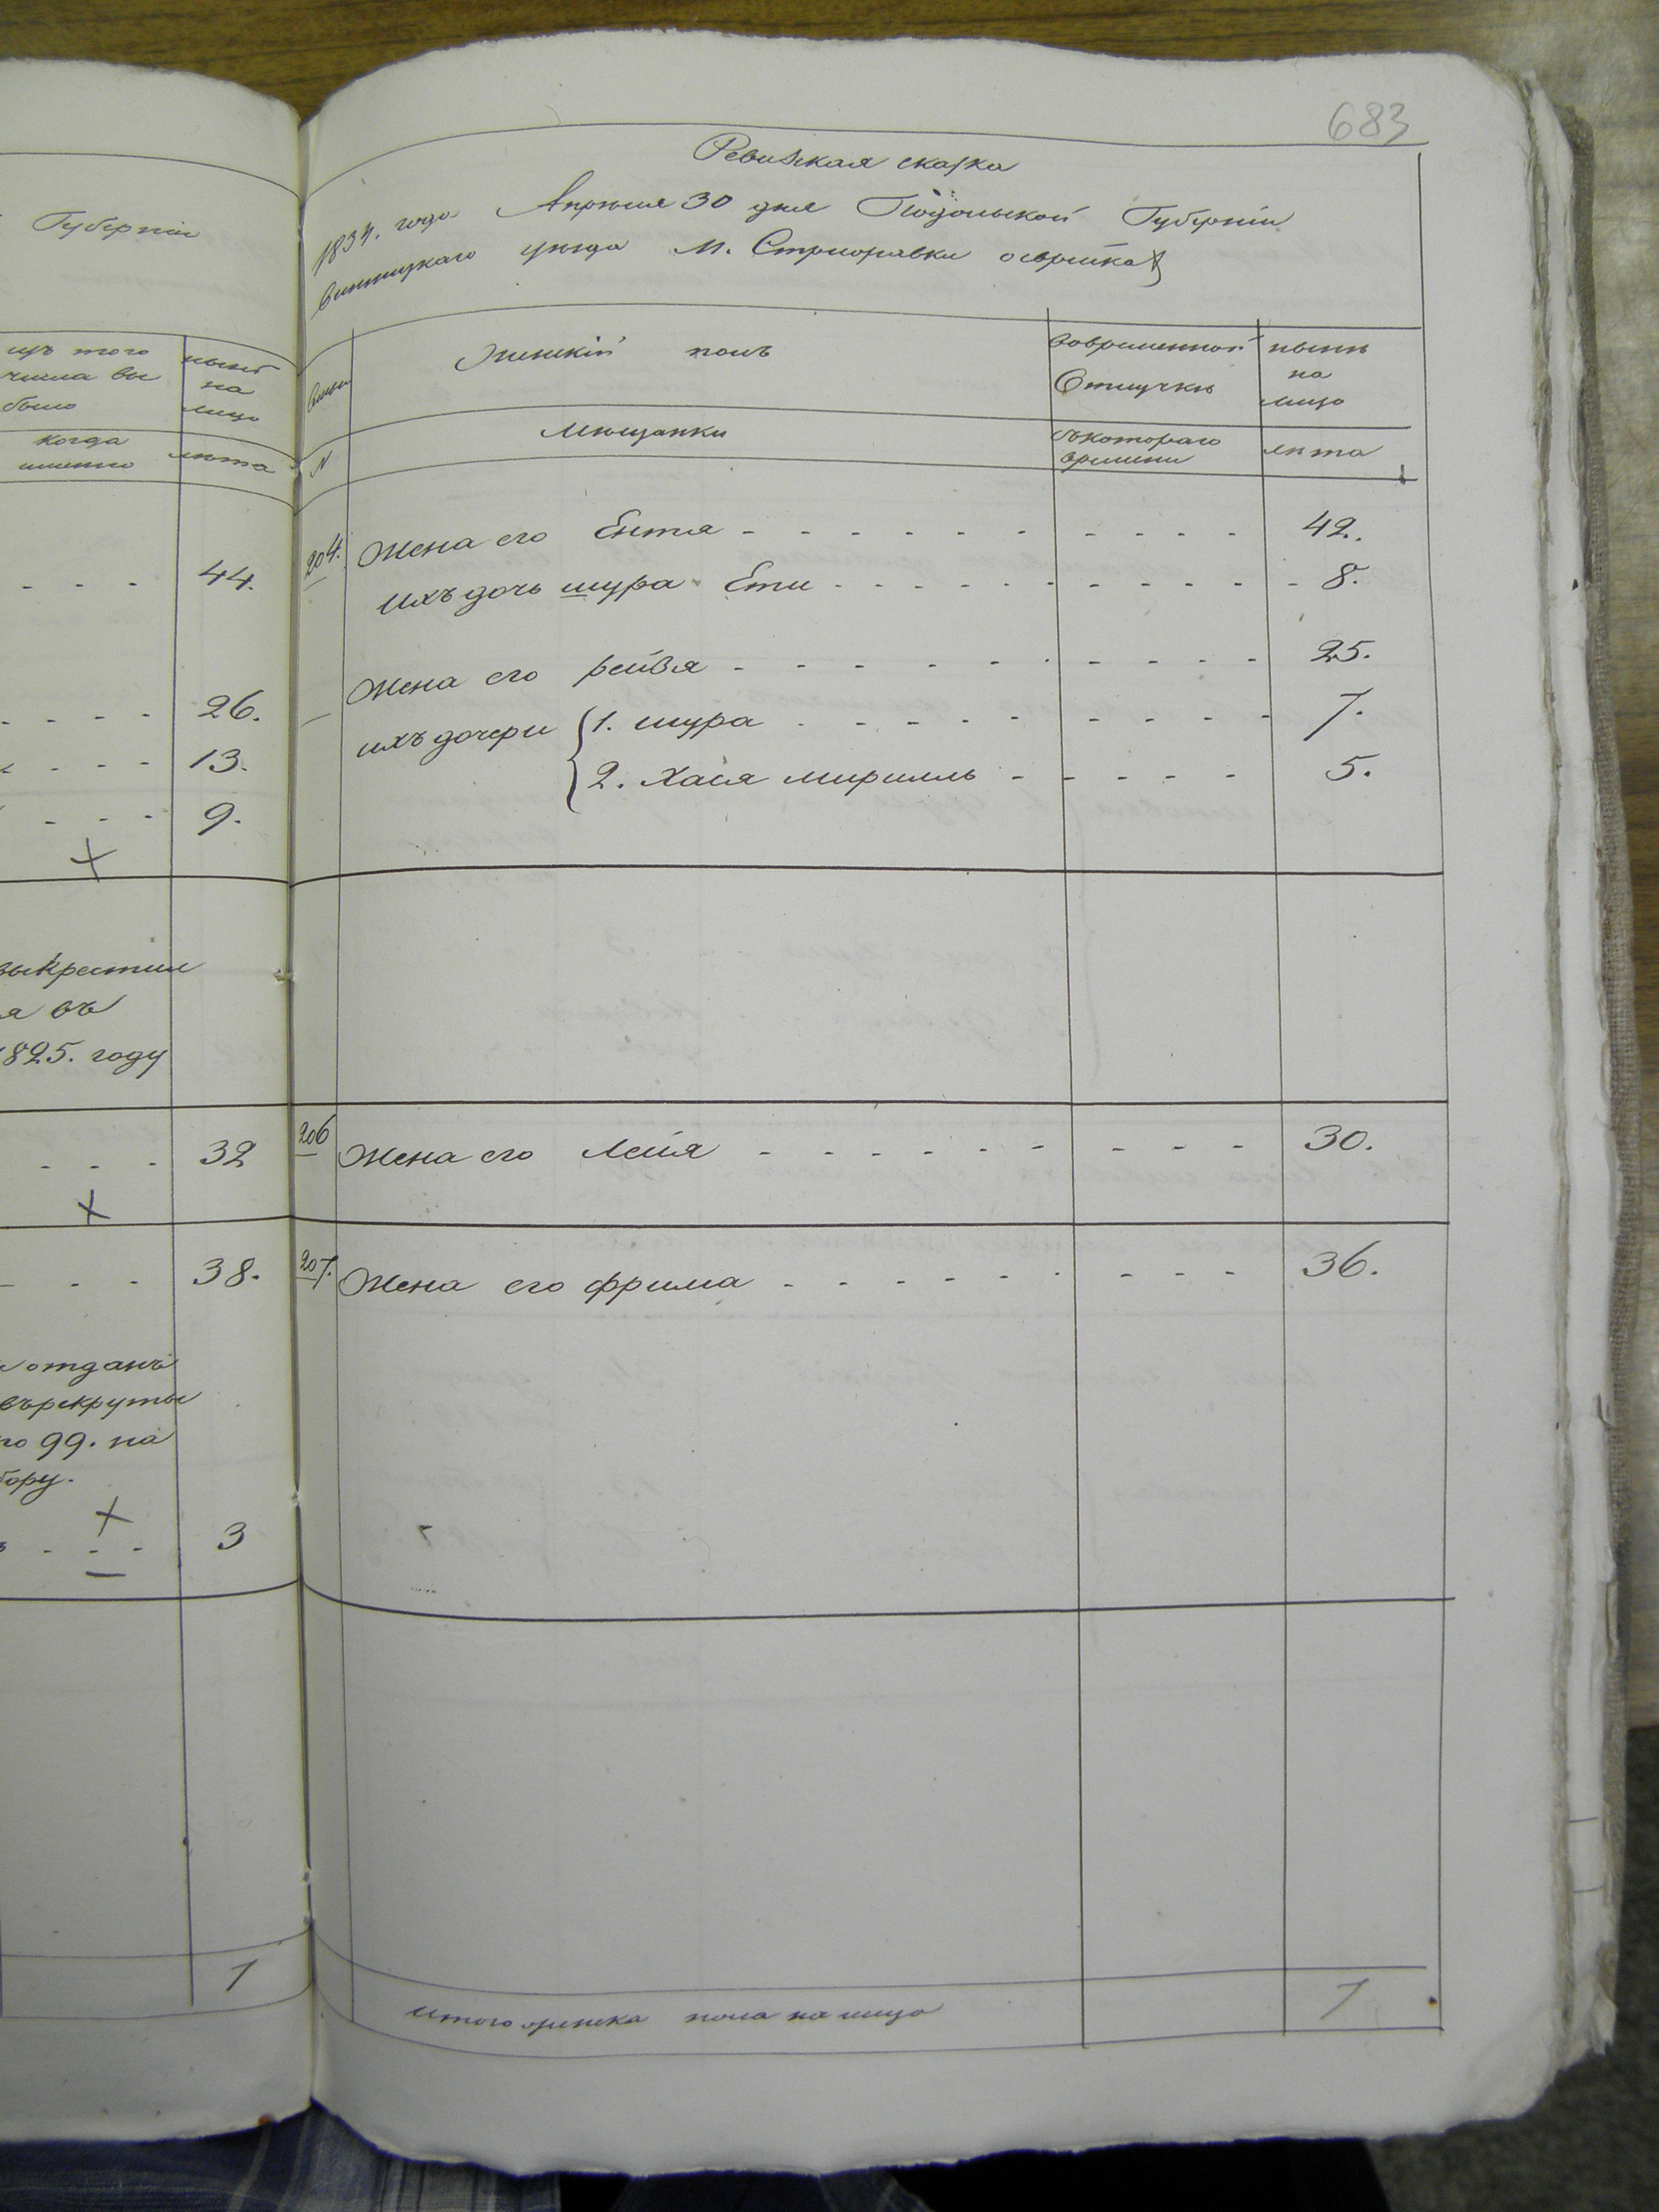 Губернiи
изъ того
числа вы
было
нынѣ
на
лицо
когда
именно
лѣта
44.
26.
13.
9.
выкрестил
я въ
1825. году
32
38.
отданъ
въ рекруты
по 99. на
бору.
3
7
683
Ревизская сказка
1834. года Апрѣля 30 дня Подольской Губернiи
Винницкаго уѣзда М. Стрижавки о еврейкахъ
Женскiй полъ
Во временной
Отлучкѣ
нынѣ
на
лицо
№
Мѣщанки
съ котораго
времени
лѣта
204. Жена его Ентя - - - - - - - - - - 42.
ихъ дочь шура Ети - - - - - - - - - - 8.
Жена его рейзя - - - - - - - - - - 25.
ихъ дочери 1. шура - - - - - - - - - 7.
2. Хася мирилль - - - - - 5.
206 Жена его Лейя - - - - - - - - 30.
207. Жена его фрима - - - - - - - - 36.
итого женска пола на лицо 7